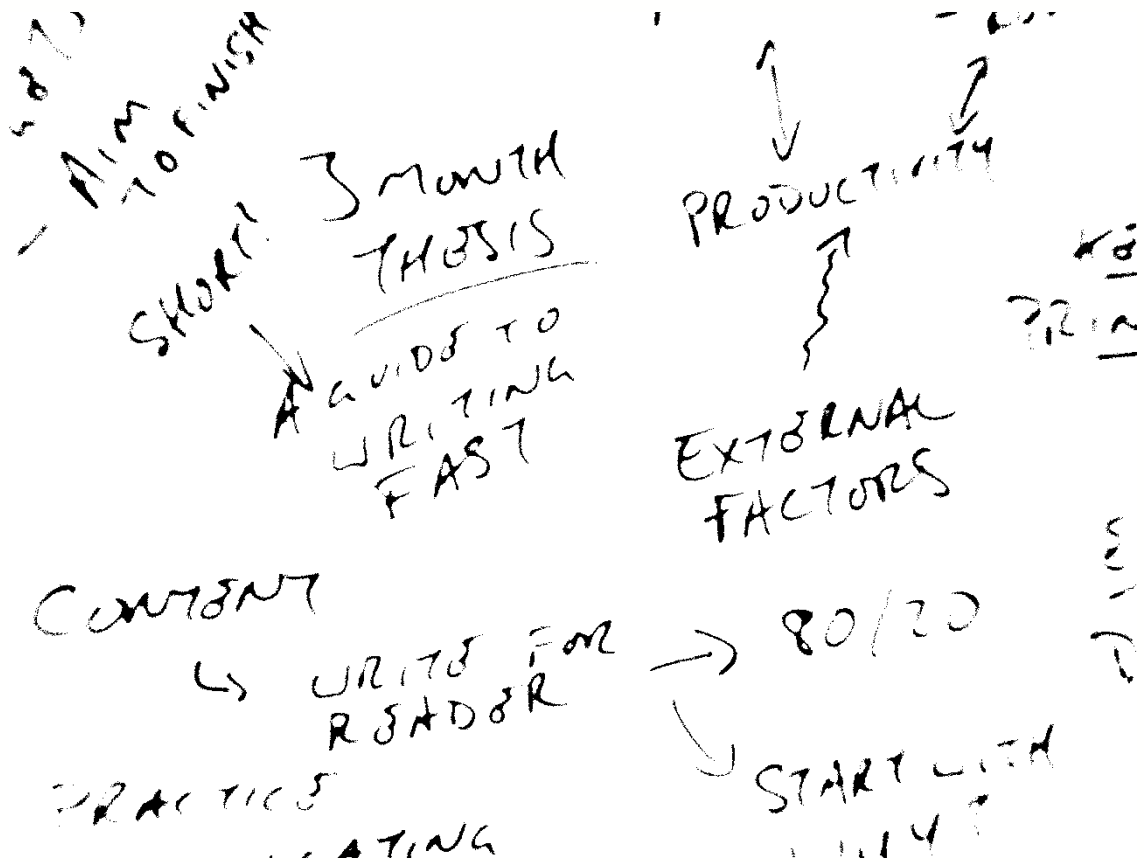 AIM
TO FINISH
SHORT!
3 MONTH
THESIS
A GUIDE TO
WRITING
FAST
PRODUCTIVITY
EXTERNAL
FACTORS
CONTENT
WRITE FOR
READER
80/20
START WITH
WHY?
PRACTICE